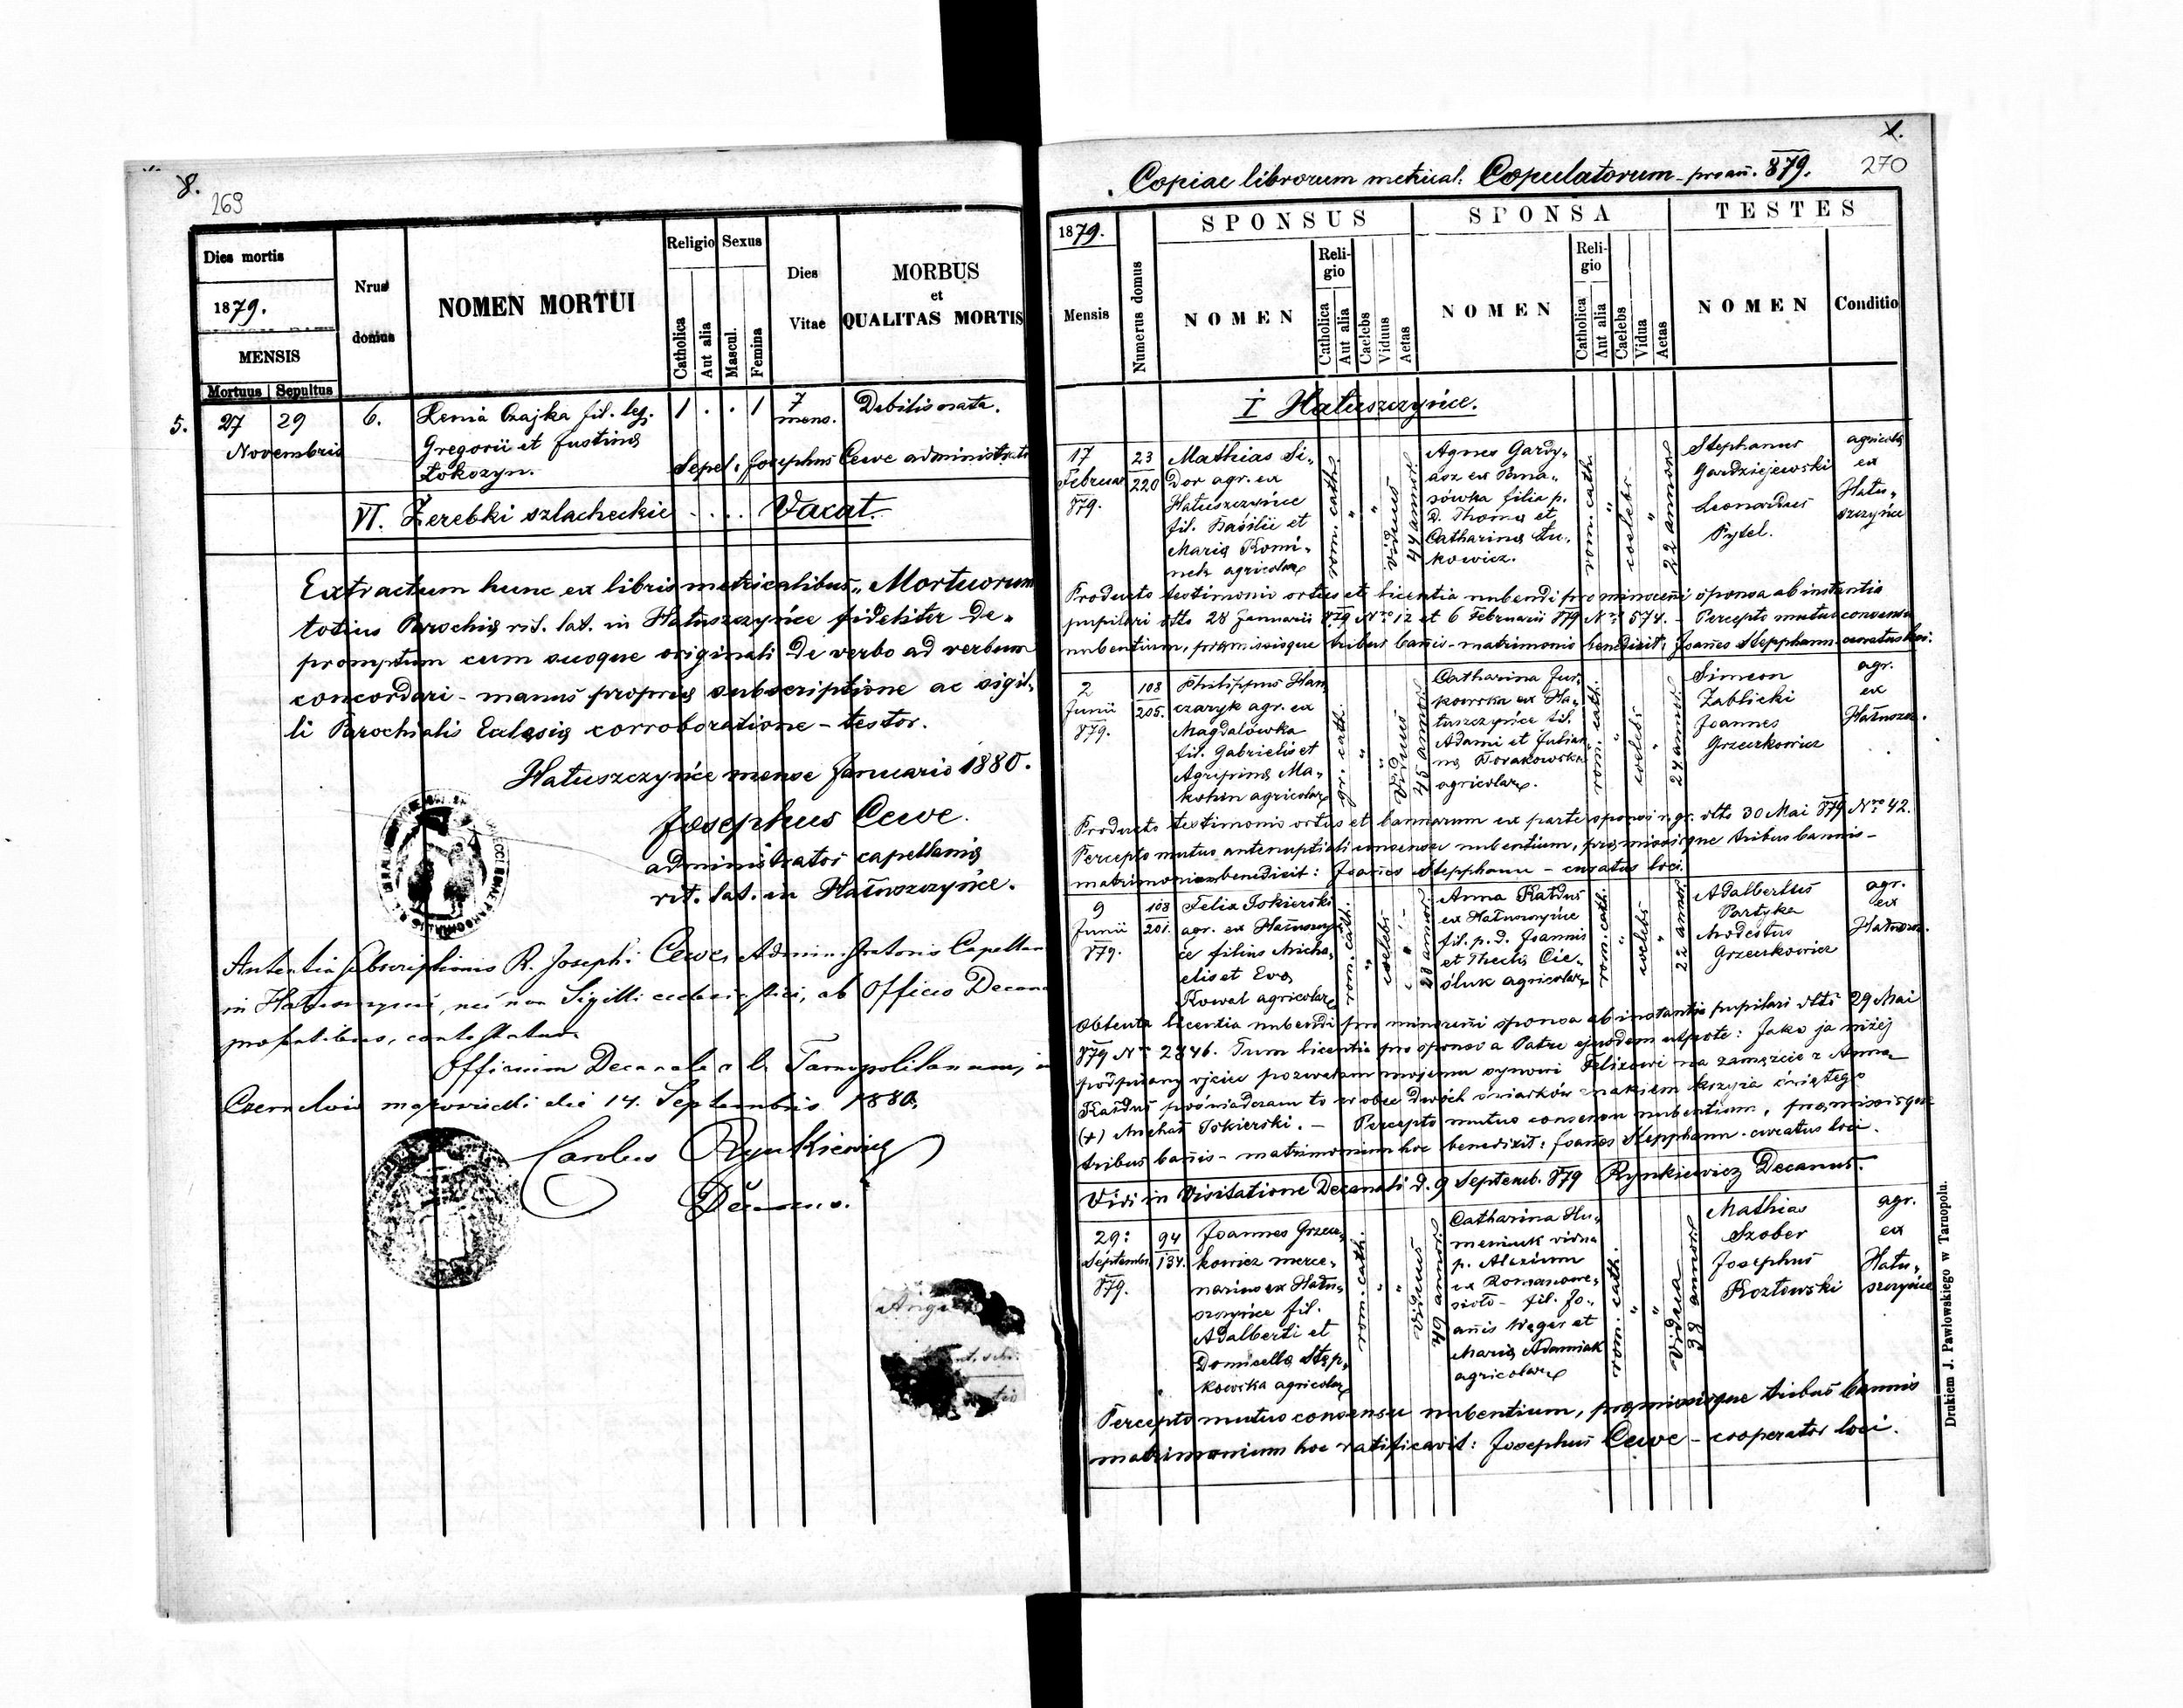 8.
269
Dies mortis
1879.
MENSIS
Mortuus Sepultus
Nrus domus
NOMEN MORTUI
Religio
Catholica
Aut alia
Sexus
Mascul.
Femina
Dies Vitae
MORBUS
et
QUALITAS MORTIS
5. 27 29 6. Xenia Czajka fil. leg. 1 . . 1 7 mens. Debilis nata.
Novembris Gregorii et Justinę
Łokozyn. Sepel: Josephus Cewe administrat
VI. Zerebki szlacheckie . . . . Vacat.
Extractum hunc ex libris metricalibus „Mortuorum
totius Parochię rit. lat. in Hałuszczyńce fideliter de„
promptum cum suoque originali de verbo ad verbum
concordari - manus proprię subscriptione ac sigil„
li Parochialis Eclesię corroboratione - testor.
Hałuszczyńce mense Januario 1880.
Josephus Cewe.
administrator capellanię
rit. lat. in Hałuszczyńce.
Subscriptionis R. Josephi Cewe, Administratoris Capellan
in nec non Sigilli ecclesiastici, ab Officio Decana
Officium Decanale r. l. Tarnopolitanum,
die 14. Septembris 1880.
Carolus Rynkiewicz
Decanus.
1.
270
Copiae librorum metrical: Copulatorum - pro añ. 879.
1879.
Mensis
Numerus domus
SPONSUS
NOMEN
Religio
Catholica
Aut alia
Caelebs
Viduus
Aetas
SPONSA
NOMEN
Religio
Catholica
Aut alia
Caelebs
Vidua
Aetas
TESTES
NOMEN
Conditio
I Hałuszczyńce.
17 Februar 879.
23
220
Mathias Si„
dor agr. ex
Hałuszczyńce
fil. Basilii et
Marię Komi„
nek agricolar
rom. cath.
" "
viduus
44 annor
Agnes Gardy„
asz ex Pana„
sówka filia p.
d. Thomę et
Catharinę Łu„
kowicz.
rom. cath.
"
coelebs
"
22 annor
Stephanus
Gardziejewski
Leonardus
Pytel.
agricolę
ex
Hału„
szczyńce
Producto testimonio ortus et licentia nubendi pro minoreñi sponsa ab instantia
pupilari dtto 28 Januarii 879 Nro 12 et 6 Februarii 879 Nro 574. - Percepto mutuo consensu
nubentium, pręmissisque tribus bañis - matrimonio benedixit: Joañes Stepphann curatus loci.
2 Junii 879.
108
205.
Philippus Han„
czaryk agr. ex
Magdalówka
fil. Gabrielis et
Agripinę Ma„
kohin agricolar
gr. cath.
" "
viduus
45 annor
Catharina Jur„
kowska ex Ha„
łuszczyńce fil.
Adami et Julian„
nę Borakowska
agricolar.
rom. cath.
"
coelebs
"
24 annor
Simeon
Zablicki
Joannes
Grzeszkowicz
agr.
ex
Hałuszcz.
Producto testimonio ortus et bannorum ex parte sponsi r. gr. dtto 30 Mai 879 Nro 42.
Percepto mutuo antenuptiali consensu nubentium, pręmissisque tribus bannis -
matrimonium benedixit: Joañes Stepphann - curatus loci.
9 Junii 879.
108
201.
Felix Iskierski
agr. ex Hałuszczyń„
ce filius Micha„
elis et Evę
Kowal agricolar
rom. cath.
"
coelebs
28 annor
Anna Kałdus
ex Hałuszczyńce
fil. p. d. Joannis
et Theclę Cie„
śluk agricolar
rom. cath.
"
coelebs
"
22 annor
Adalbertus
Partyka
Modestus
Grzeszkowicz
agr.
ex
Hałuszcz.
Obtenta licentia nubendi pro minoreñi sponsa ab instantia pupilari dtto 29 Mai
879 Nro 2846. Tum licentia pro sponso a Patre ejusdem utpote: Jako ja niżéj
podpisany ojciec pozwalam mojemu synowi Felixowi na zamęzcie z Anną
Kałduś poświadczam to w obec dwóch świadków znakiem krzyża świętego
(+) Michał Iskierski. - Percepto mutuo consensu nubentium, pręmissisque
tribus bañis - matrimonium hoc benedixit: Joañes Stepphann - curatus loci.
Vidi in Visitatione Decanali d. 9 Septemb. 879 Rynkiewicz Decanus.
29: Septembr. 879.
94
134.
Joannes Grzesz„
kowicz merce„
narius ex Hału„
szczyńce fil.
Adalberti et
Domicellę Stęp„
kowska agricolar
rom. cath.
" "
viduus
49 annor
Catharina Hu„
meniuk vidua
p. Alexium
ex Romanowe„
sioło - fil. Jo„
añis Węgër et
Marię Adamiak
agricolar
rom. cath.
" "
Vidua
38 annor
Mathias
Szober
Josephus
Kozłowski
agr.
ex
Hału„
szczyńce
Percepto mutuo consensu nubentium, pręmissisque tribus bannis
matrimonium hoc ratificavit: Josephus Cewe - cooperator loci.
Drukiem J. Pawłowskiego w Tarnopolu.